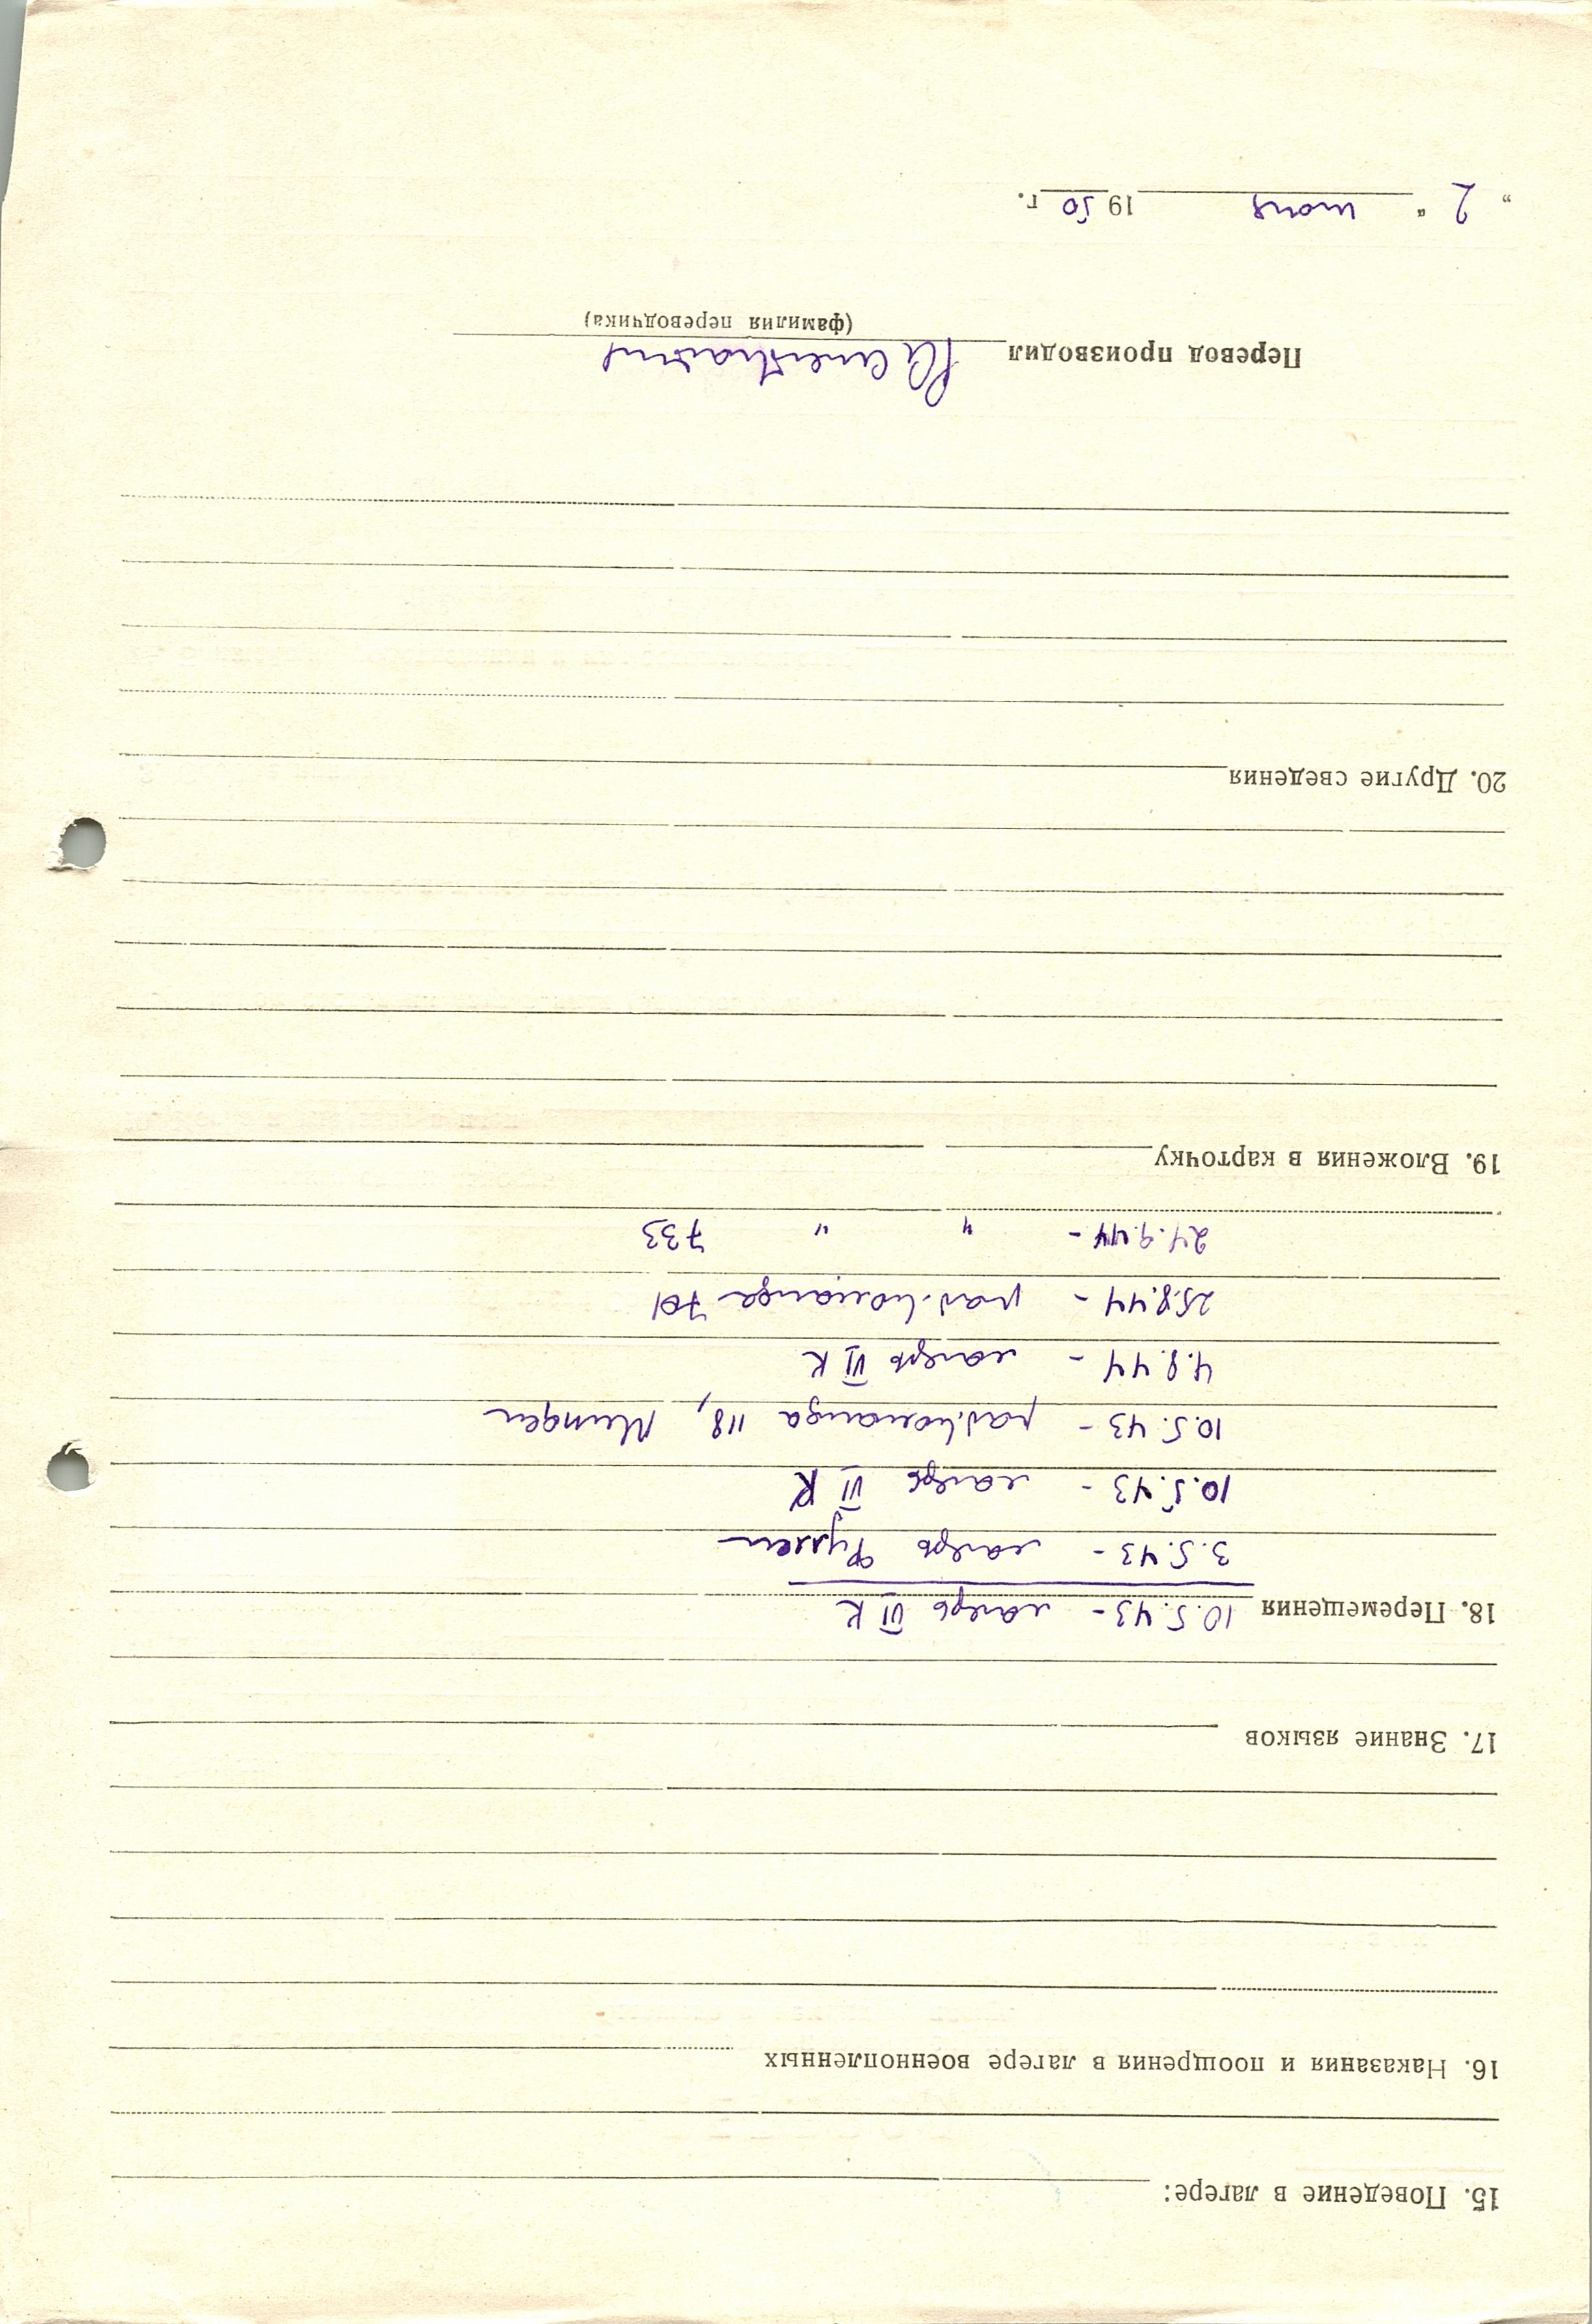 15. Поведение в лагере:
16. Наказания и поощрения в лагере военнопленных
17. Знание языков
18. Перемещения 10.5.43 - лагерь VI К
3.5.43 - лагерь
10.5.43 - лагерь VI К
10.5.43 - раб.команда 118, Минден
4.8.44 - лагерь VI К
25.8.44 - раб.команда 701
24.9.44 - " " 733
19. Вложения в карточку
20. Другие сведения
Перевод производил
(фамилия переводчика)
„ 2 “ июня 19 50 г.